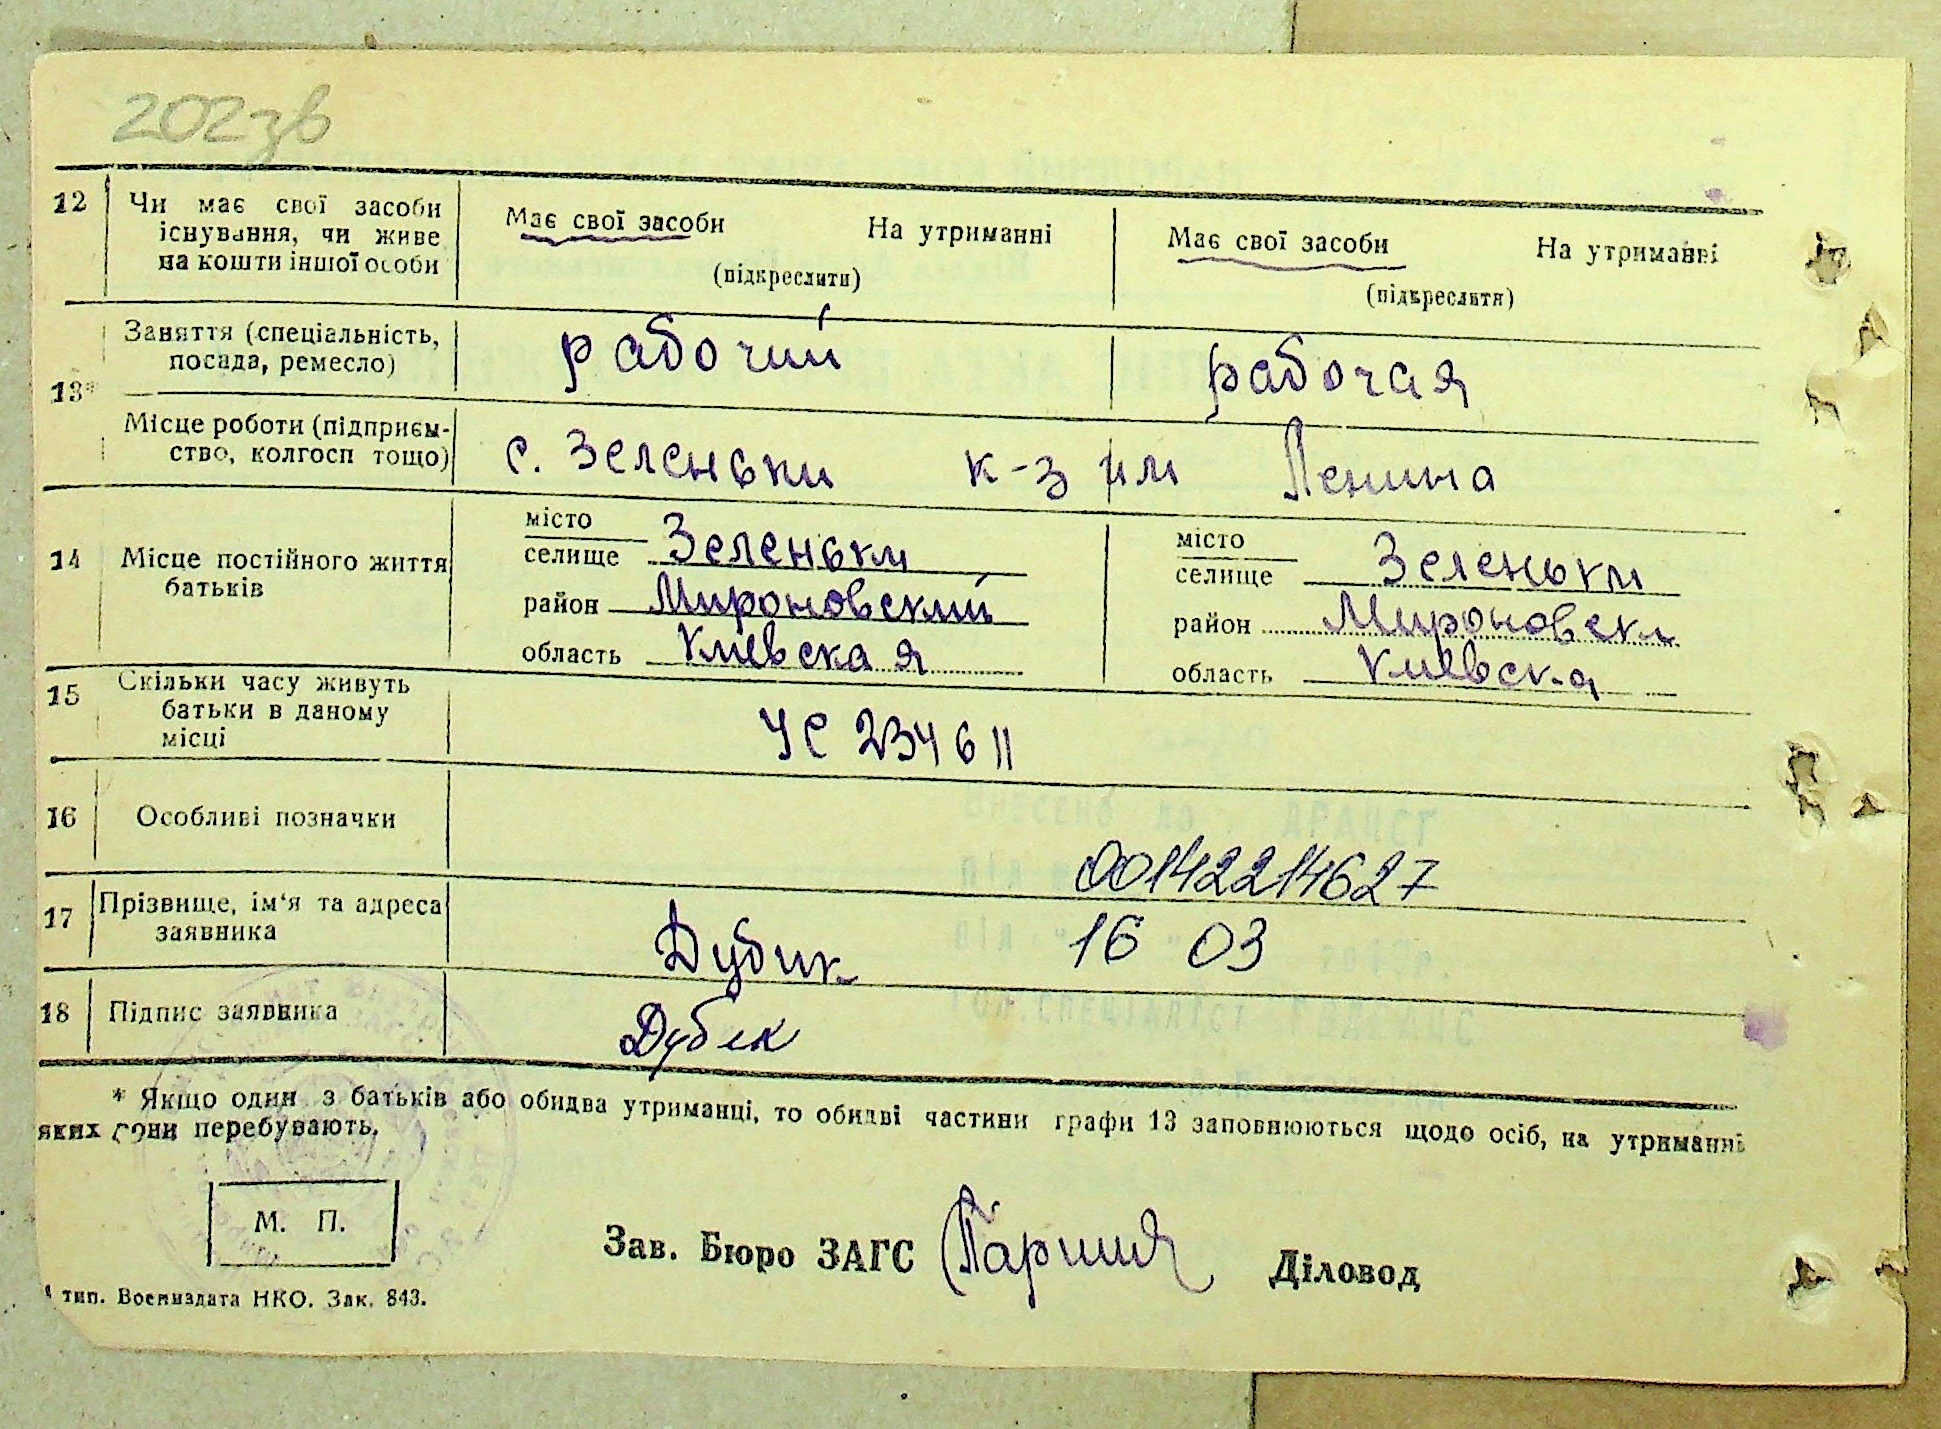 202зв
12 Чи має свої засоби існування, чи живе на кошти іншої особи
Має свої засоби На утриманні
(підкреслити)
Має свої засоби На утриманні
(підкреслити)
13*
Заняття (спеціальність, посада, ремесло)
рабочий
рабочая
Місце роботи (підприєм-
ство, колгосп тощо)
с. Зеленьки к-з им Ленина
14 Місце постійного життя батьків
місто
селище Зеленьки
район Мироновский
область Киевская
місто
селище Зеленьки
район Мироновск
область Киевска
15 Скільки часу живуть батьки в даному місці
УС 234611
16 Особливі позначки
00142214627
17 Прізвище, ім'я та адреса заявника
Дубик 16 03
18 Підпис заявника
Дубик
* Якщо один з батьків або обидва утриманці, то обидві частини графи 13 заповнюються щодо осіб, на утриманні
яких вони перебувають.
М. П.
Зав. Бюро ЗАГС Діловод
тип. Воениздата НКО. Зак. 843.